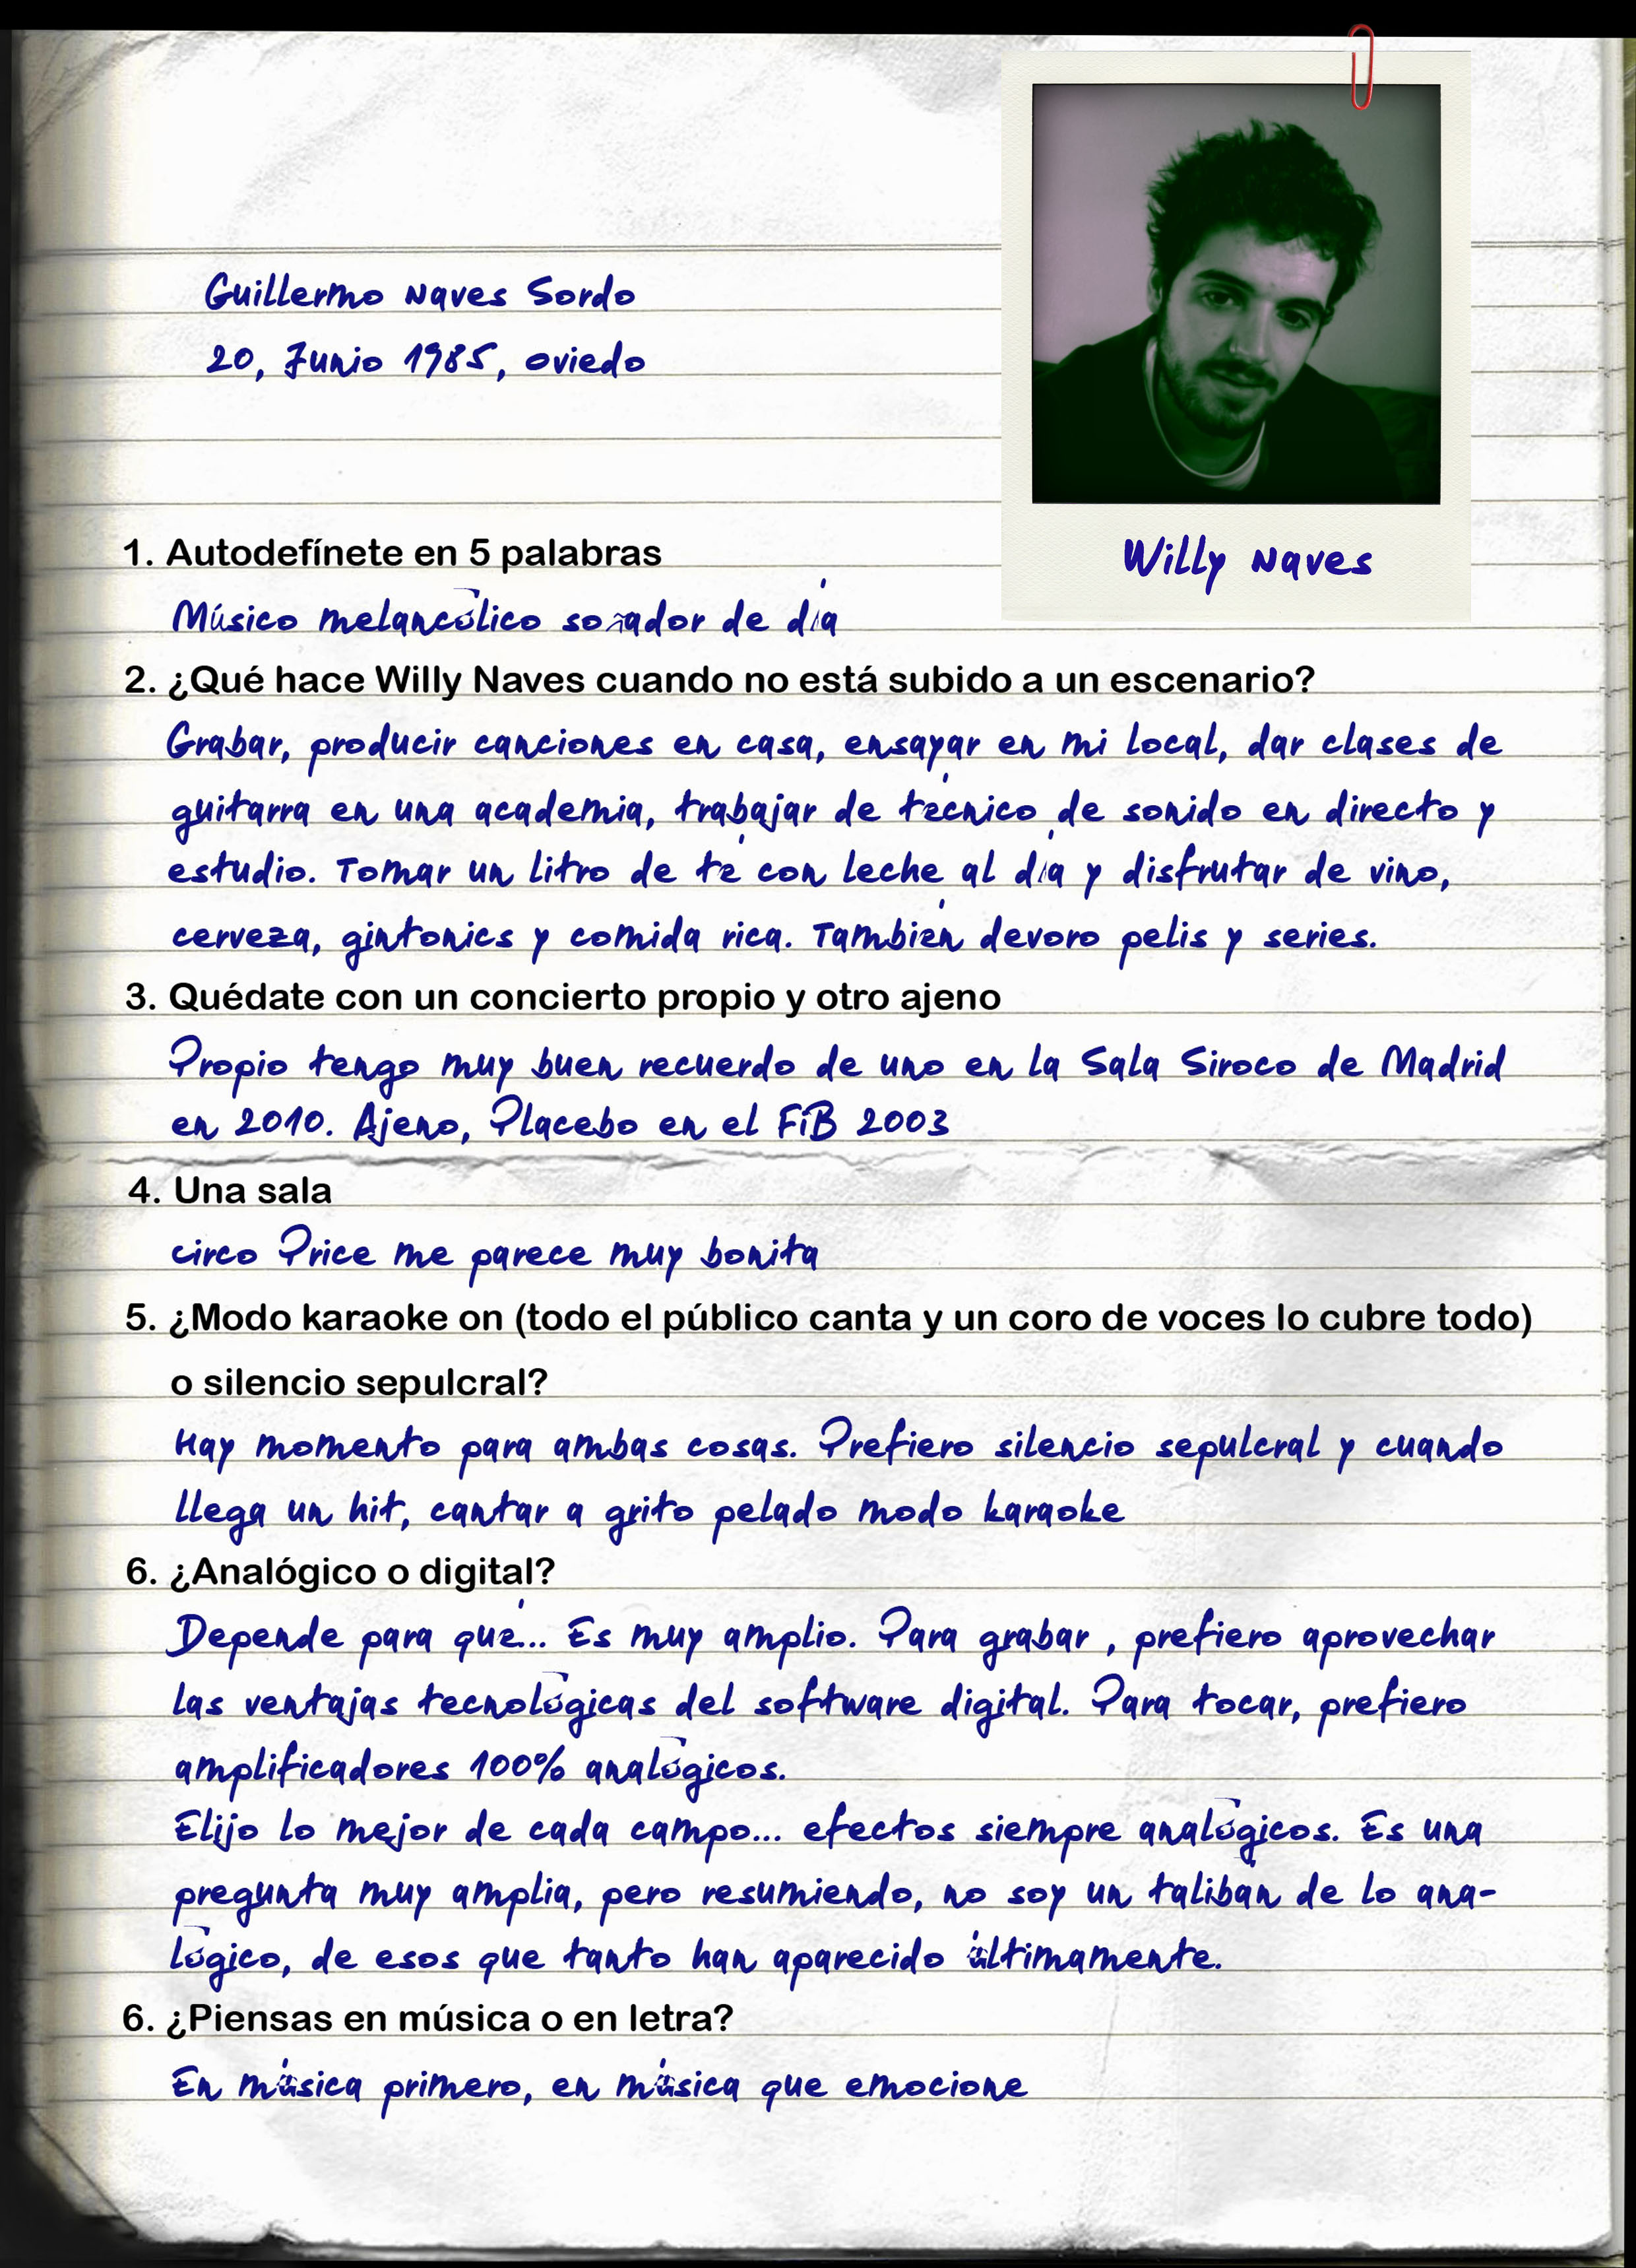 Guillermo Naves Sordo
20, Junio 1985, Oviedo
Willy Naves
1. Autodefínete en 5 palabras
Músico melancólico soñador de día
2. ¿Qué hace Willy Naves cuando no está subido a un escenario?
Grabar, producir canciones en casa, ensayar en mi local, dar clases de
guitarra en una academia, trabajar de técnico de sonido en directo y
estudio. Tomar un litro de té con leche al día y disfrutar de vino,
cerveza, gintonics y comida rica. También devoro pelis y series.
3. Quédate con un concierto propio y otro ajeno
Propio tengo muy buen recuerdo de uno en la Sala Siroco de Madrid
en 2010. Ajeno, Placebo en el FiB 2003
4. Una sala
circo Price me parece muy bonita
5. ¿Modo karaoke on (todo el público canta y un coro de voces lo cubre todo)
o silencio sepulcral?
Hay momento para ambas cosas. Prefiero silencio sepulcral y cuando
llega un hit, cantar a grito pelado modo karaoke
6. ¿Analógico o digital?
Depende para qué... Es muy amplio. Para grabar , prefiero aprovechar
las ventajas tecnológicas del software digital. Para tocar, prefiero
amplificadores 100% analógicos.
Elijo lo mejor de cada campo... efectos siempre analógicos. Es una
pregunta muy amplia, pero resumiendo, no soy un talibán de lo ana-
lógico, de esos que tanto han aparecido últimamente.
6. ¿Piensas en música o en letra?
En música primero, en música que emocione